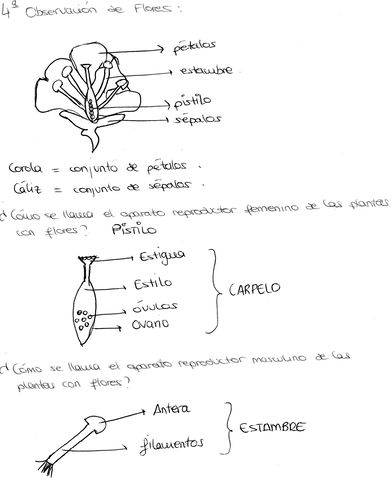 4ª Observación de Flores:
pétalos
estambre.
pistilo
sépalos
Corola = conjunto de pétalos.
Cáliz = conjunto de sépalos.
¿Cómo se llama el aparato reproductor femenino de las plantas
con flores? PISTILO
Estigma
Estilo
óvulos
Ovario
CARPELO
¿Cómo se llama el aparato reproductor masculino de las
plantas con flores?
Antera
filamentos
ESTAMBRE